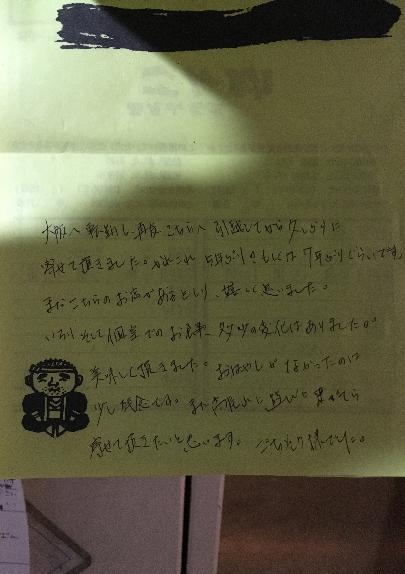 大阪へ転勤し再度こちらへ引越してから久しぶりに
寄せて頂きました。かれこれ 5年ぶり？もしくは 7年ぶりくらいです
まだこちらのお店があるとしり、嬉しく思いました。
個室でのお食事、多少の変化はありましたが
美味しく頂きました。おはやしがなかったのは
少し残念です。また
寄せて頂きたいと思います。ごちそう様でした。